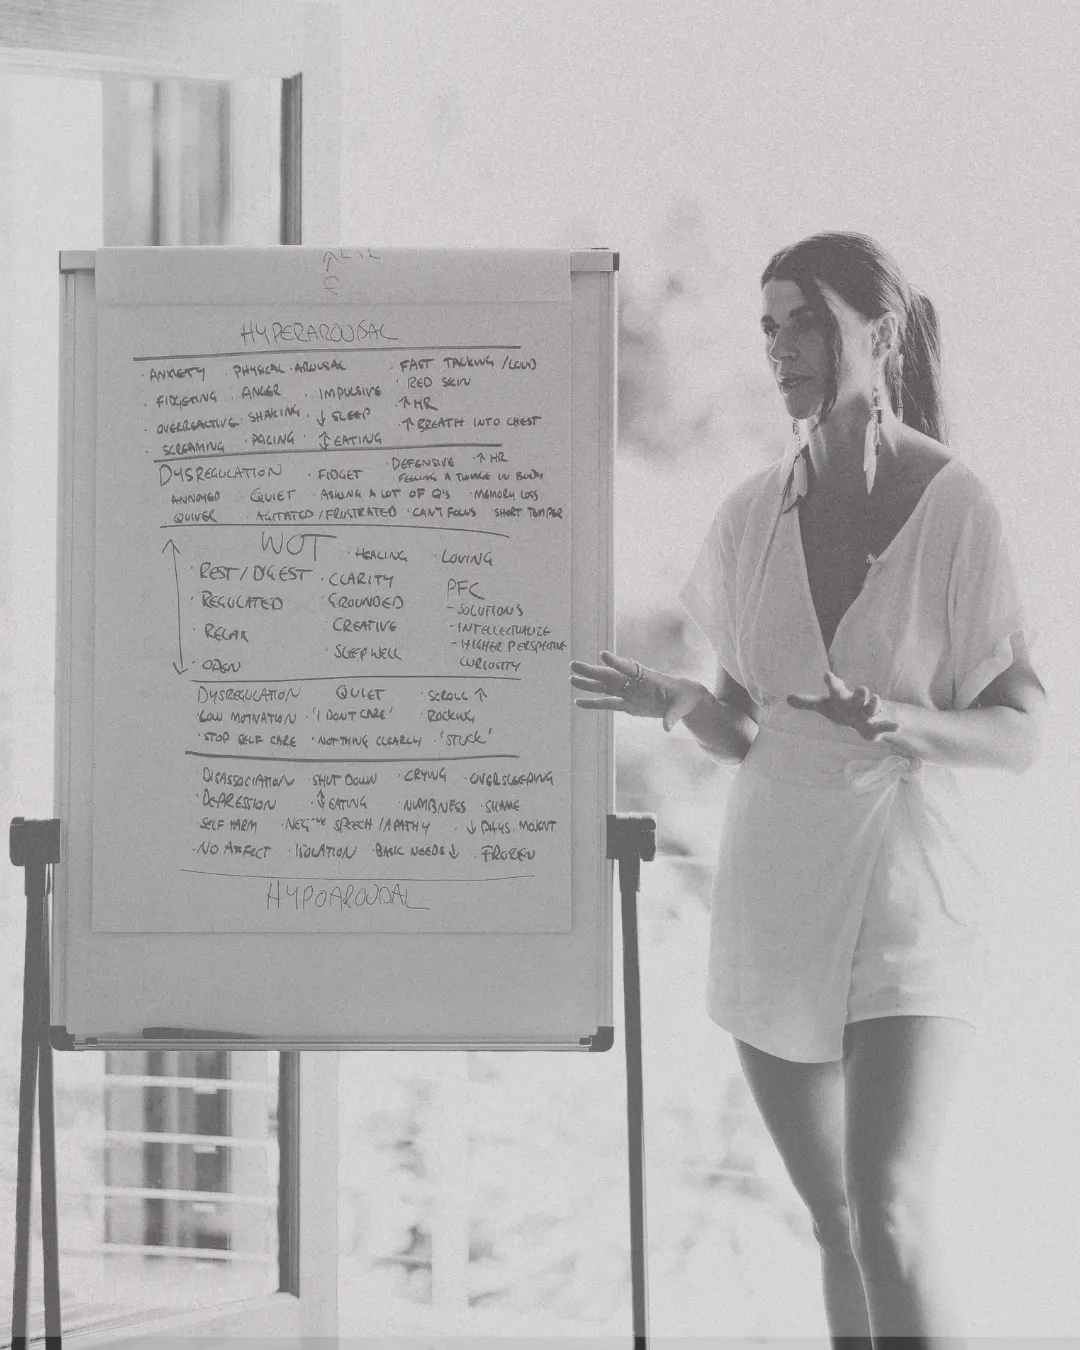 HYPERAROUSAL
· ANXIETY · PHYSICAL · AROUSAL · FAST TALKING / LOUD
· FIDGETING · ANGER · IMPULSIVE · RED SKIN
· OVERREACTIVE · SHAKING · ↓ SLEEP · ↑ HR
· SCREAMING · PACING · ↕ EATING · ↑ BREATH INTO CHEST
DYSREGULATION · FIDGET DEFENSIVE · ↑ HR
· FEELING A TWINGE IN BODY
· ANNOYED · QUIET · ASKING A LOT OF Q'S · MEMORY LOSS
· QUIVER · AGITATED / FRUSTRATED · CAN'T FOCUS · SHORT TEMPER
WOT · HEALING · LOVING
· REST / DIGEST · CLARITY PFC
· REGULATED · GROUNDED - SOLUTIONS
· RELAX CREATIVE - INTELLECTUALIZE
· OPEN · SLEEP WELL - HIGHER PERSPECTIVE
CURIOSITY
DYSREGULATION QUIET · SCROLL ↑
· LOW MOTIVATION · 'I DONT CARE' · ROCKING
· STOP SELF CARE · NOT THING CLEARLY · 'STUCK'
· DISASSOCIATION · SHUT DOWN · CRYING · OVERSLEEPING
· DEPRESSION · ↕ EATING · NUMBNESS · SHAME
· SELF HARM · NEG-VE SPEECH / APATHY · ↓ PHYS. MOVNT
· NO AFFECT · ISOLATION · BASIC NEEDS ↓ · FROZEN
HYPOAROUSAL